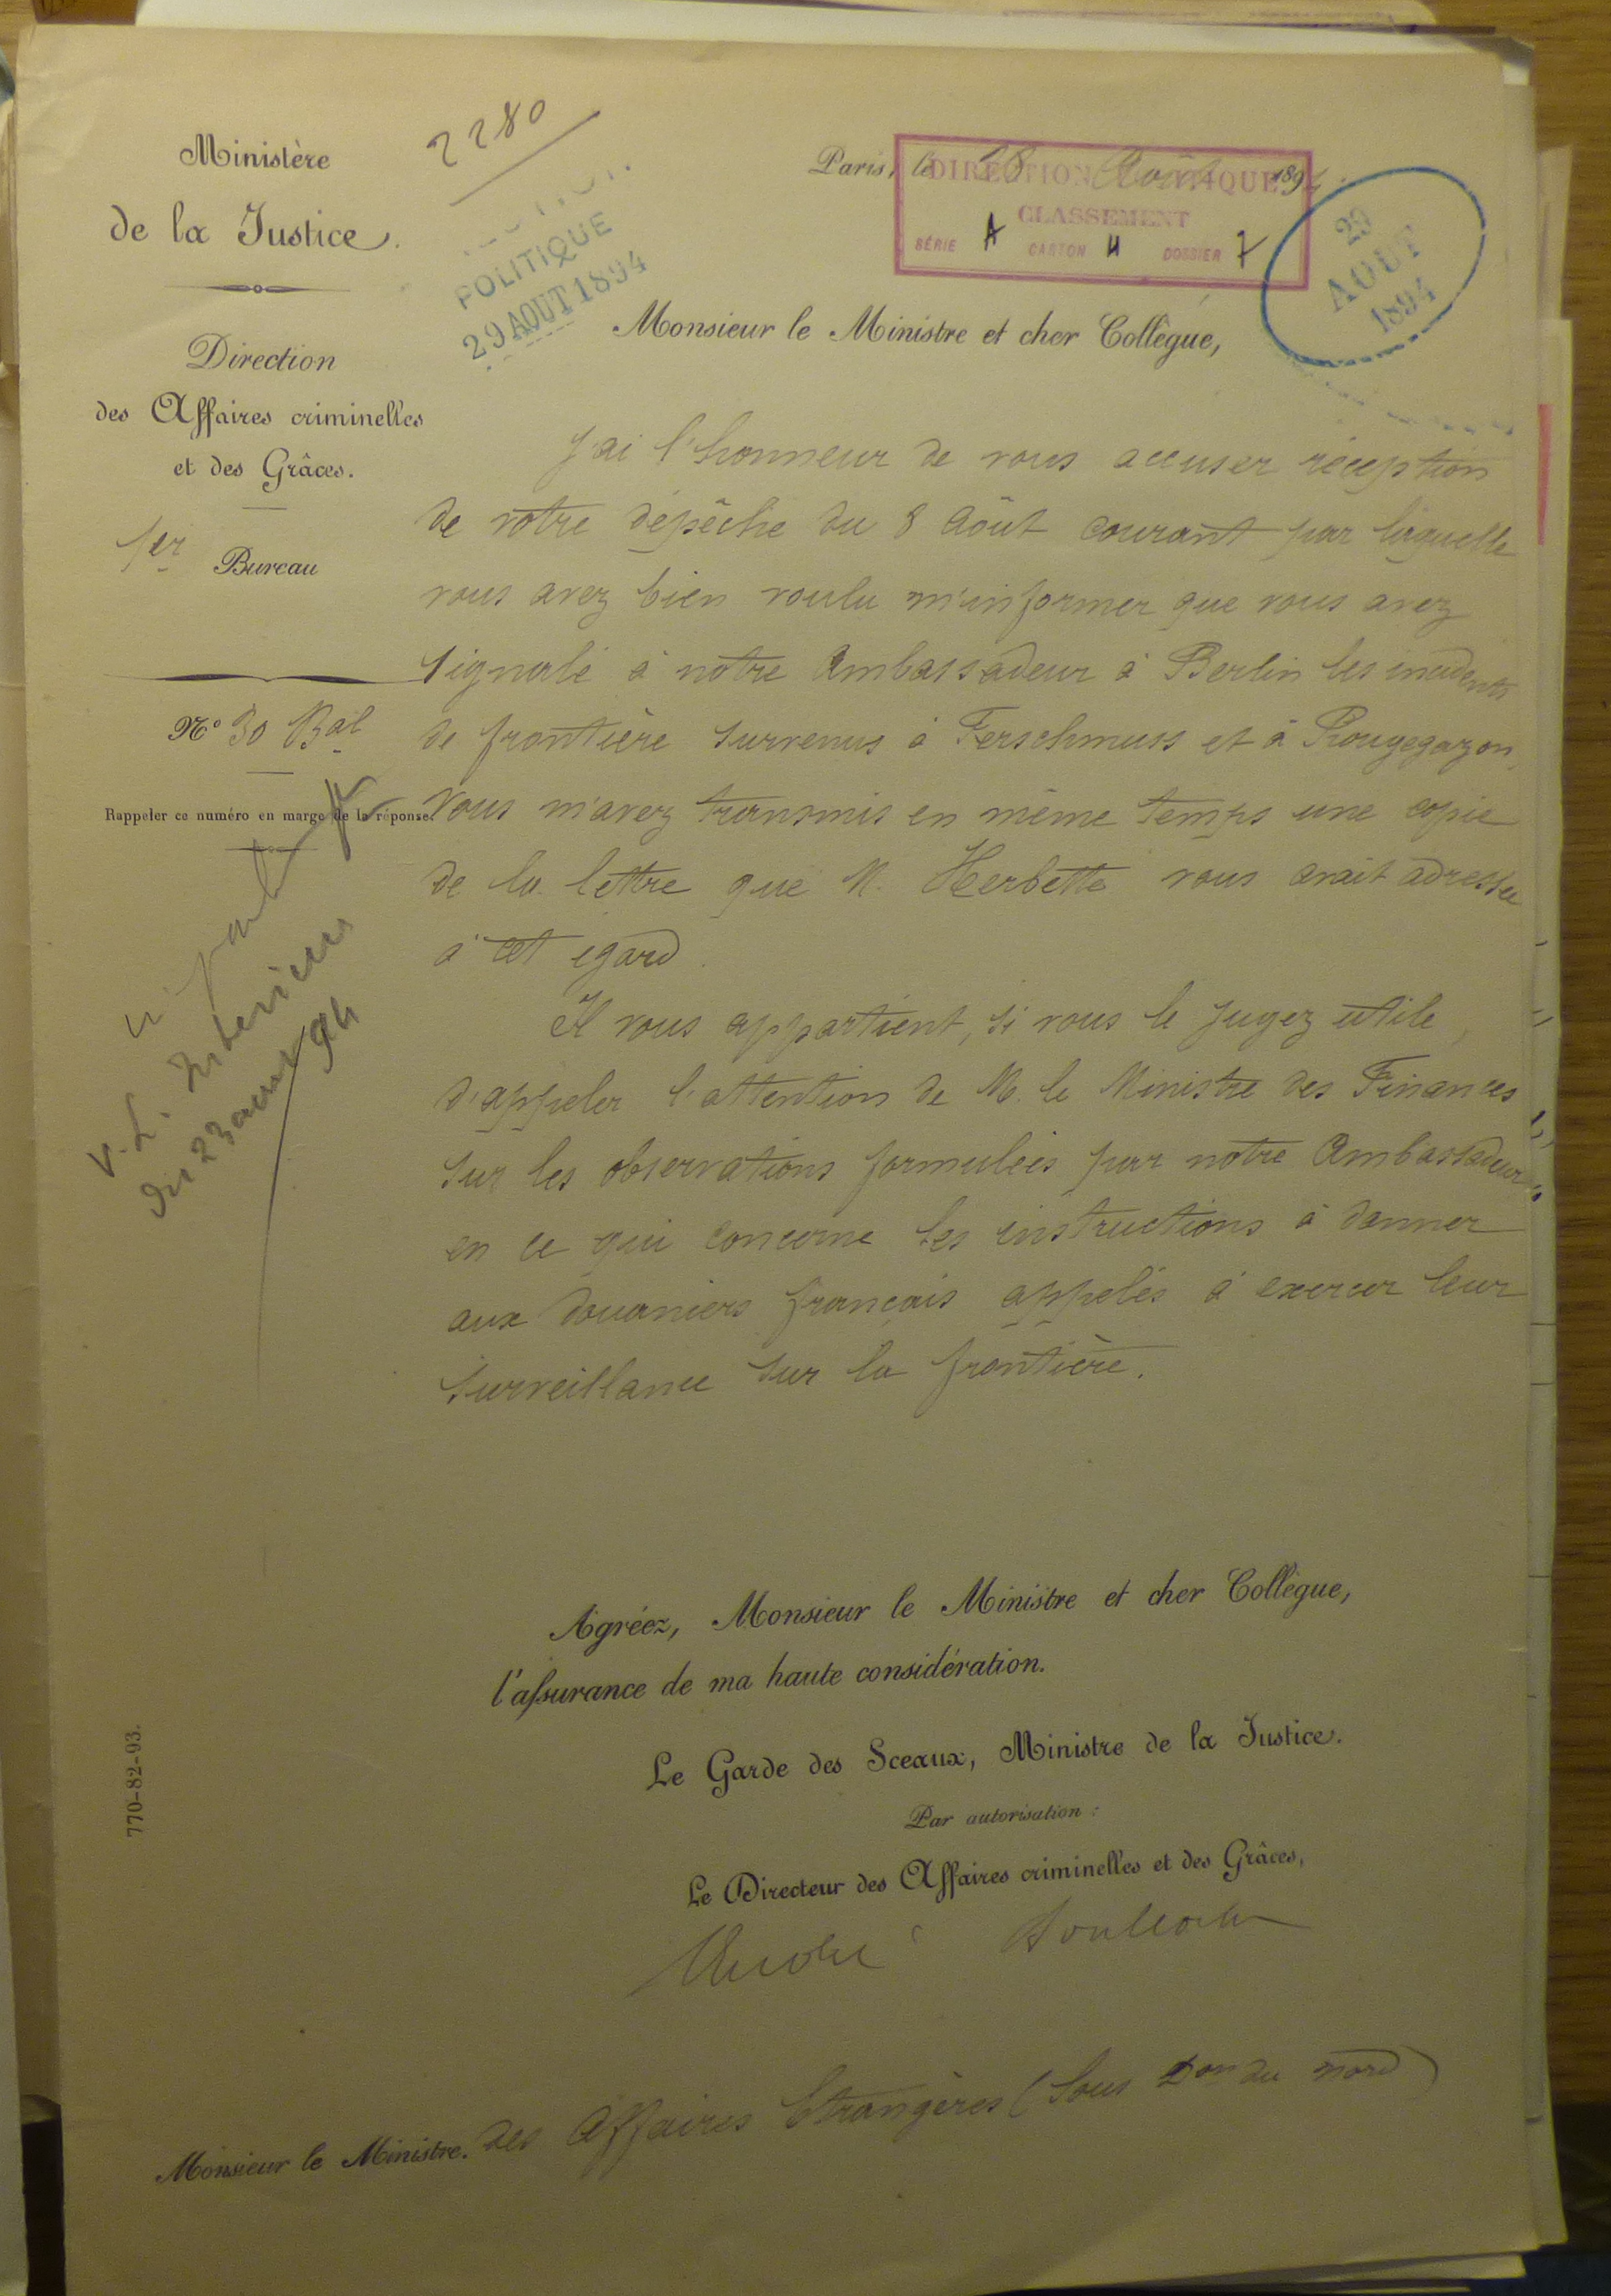 Ministère
de la Justice.
Direction
des Affaires criminelles
et des Grâces.
1er Bureau
N° 30 Bal
Rappeler ce numéro en marge de la réponse.
2280
POLITIQUE
29 AOUT 1894
Paris, le 28 Août 1894.
DIRECTION POLITIQUE
CLASSEMENT
SÉRIE A CARTON 4 DOSSIER 7
29
AOUT
1894
Monsieur le Ministre et cher Collègue,
J'ai l'honneur de vous accuser réception
de votre dépêche du 8 Août courant par laquelle
vous avez bien voulu m'informer que vous avez
signalé à notre Ambassadeur à Berlin les incidents
de frontière survenus à Ferschmuss et à Rougegazon.
Vous m'avez transmis en même temps une copie
de la lettre que M. Herbette vous avait adressée
à cet égard.
Il vous appartient, si vous le jugez utile,
d'appeler l'attention de M. le Ministre des Finances
sur les observations formulées par notre Ambassadeur
en ce qui concerne les instructions à donner
aux douaniers français appelés à exercer leur
surveillance sur la frontière.
V. L. Intérieur
du 23 94
Agréez, Monsieur le Ministre et cher Collègue,
l'assurance de ma haute considération.
Le Garde des Sceaux, Ministre de la Justice.
Par autorisation :
Le Directeur des Affaires criminelles et des Grâces,
André
Monsieur le Ministre des Affaires Etrangères (Sous Don du nord)
770-82-93.